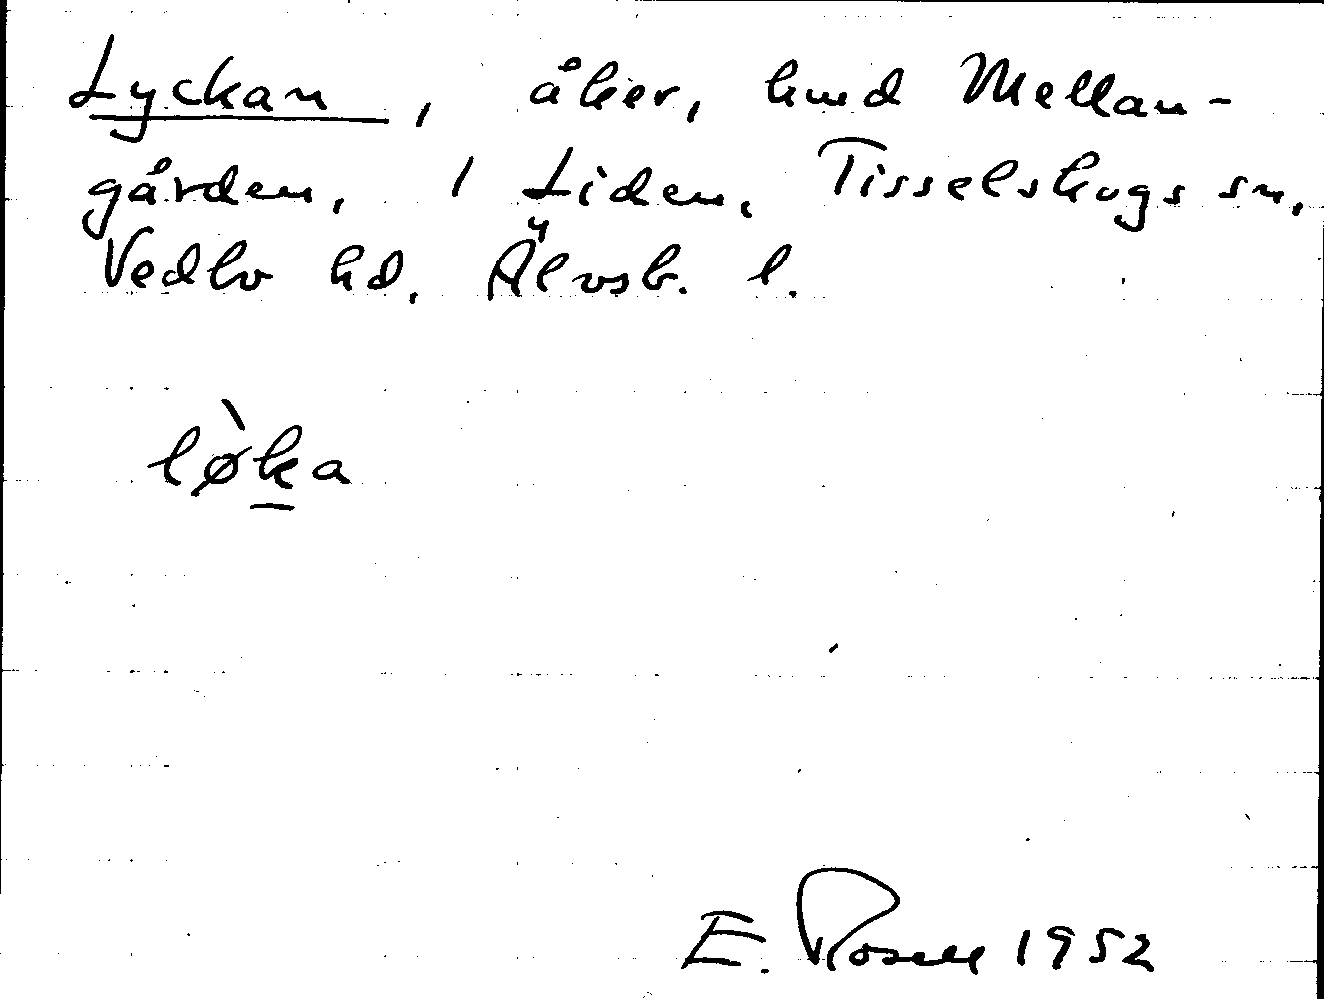 Lyckan, åker, hmd Mellan-
gården, 1 Liden, Tisselskogs sn,
Vedbo hd, Älvsb. l.
lø̀ḵa
E. Rosell 1952